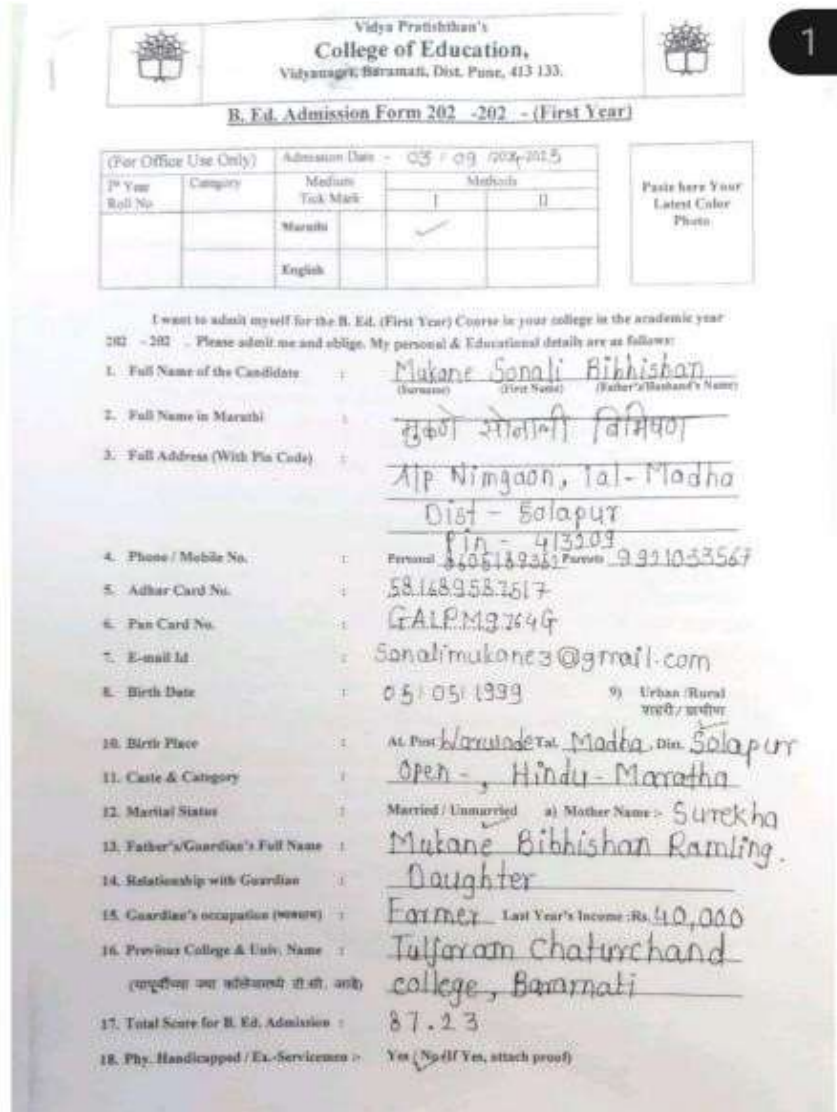 1
Vidya Pratishthan's
College of Education,
Vidyanagri, Baramati, Dist. Pune, 413 133.
B. Ed. Admission Form 202 -202 - (First Year)
(For Office Use Only) Admission Date - 03 / 09 /2024-2025
Ist Year Roll No Category Medium Tick Mark Methods
I II
Marathi ✓
English
Paste here Your
Latest Color
Photo
I want to admit myself for the B. Ed. (First Year) Course in your college in the academic year
202 - 202 . Please admit me and oblige. My personal & Educational details are as follows:
1. Full Name of the Candidate : Mukane Sonali Bibhishan
(Surname) (First Name) (Father's/Husband's Name)
2. Full Name in Marathi : मुकणे सोनाली बिभिषण
3. Full Address (With Pin Code) : A/p Nimgaon, Tal- Madha
Dist - Solapur
Pin - 413209
4. Phone / Mobile No. : Personal Parents 9921033567
5. Adhar Card No. :
6. Pan Card No. : GALPM9764G
7. E-mail Id : Sonalimukane3@gmail.com
8. Birth Date : 05/05/1999 9) Urban /Rural
शहरी / ग्रामीण
10. Birth Place : At. Post Tal. Madha Dist. Solapur
11. Caste & Category : Open - , Hindu - Maratha
12. Marital Status : Married / Unmarried a) Mother Name :- Surekha
13. Father's/Guardian's Full Name : Mukane Bibhishan Ramling.
14. Relationship with Guardian : Daughter
15. Guardian's occupation (व्यवसाय) : Farmer Last Year's Income :Rs. 40,000
16. Previous College & Univ. Name : Tuljaram Chaturchand
(यापूर्वीच्या ज्या कॉलेजमधी टी.सी. आहे) college, Baramati
17. Total Score for B. Ed. Admission : 87.23
18. Phy. Handicapped / Ex.-Servicemen :- Yes / No (If Yes, attach proof)